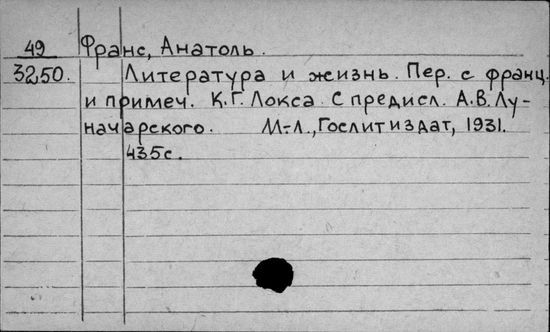 49 Франс, Анатоль.
3250. Литература и жизнь. Пер. с франц.
и примеч. К.Г. Локса. С предисл. А.В. Лу-
начарского. М.-Л., Гослитиздат, 1931.
435с.